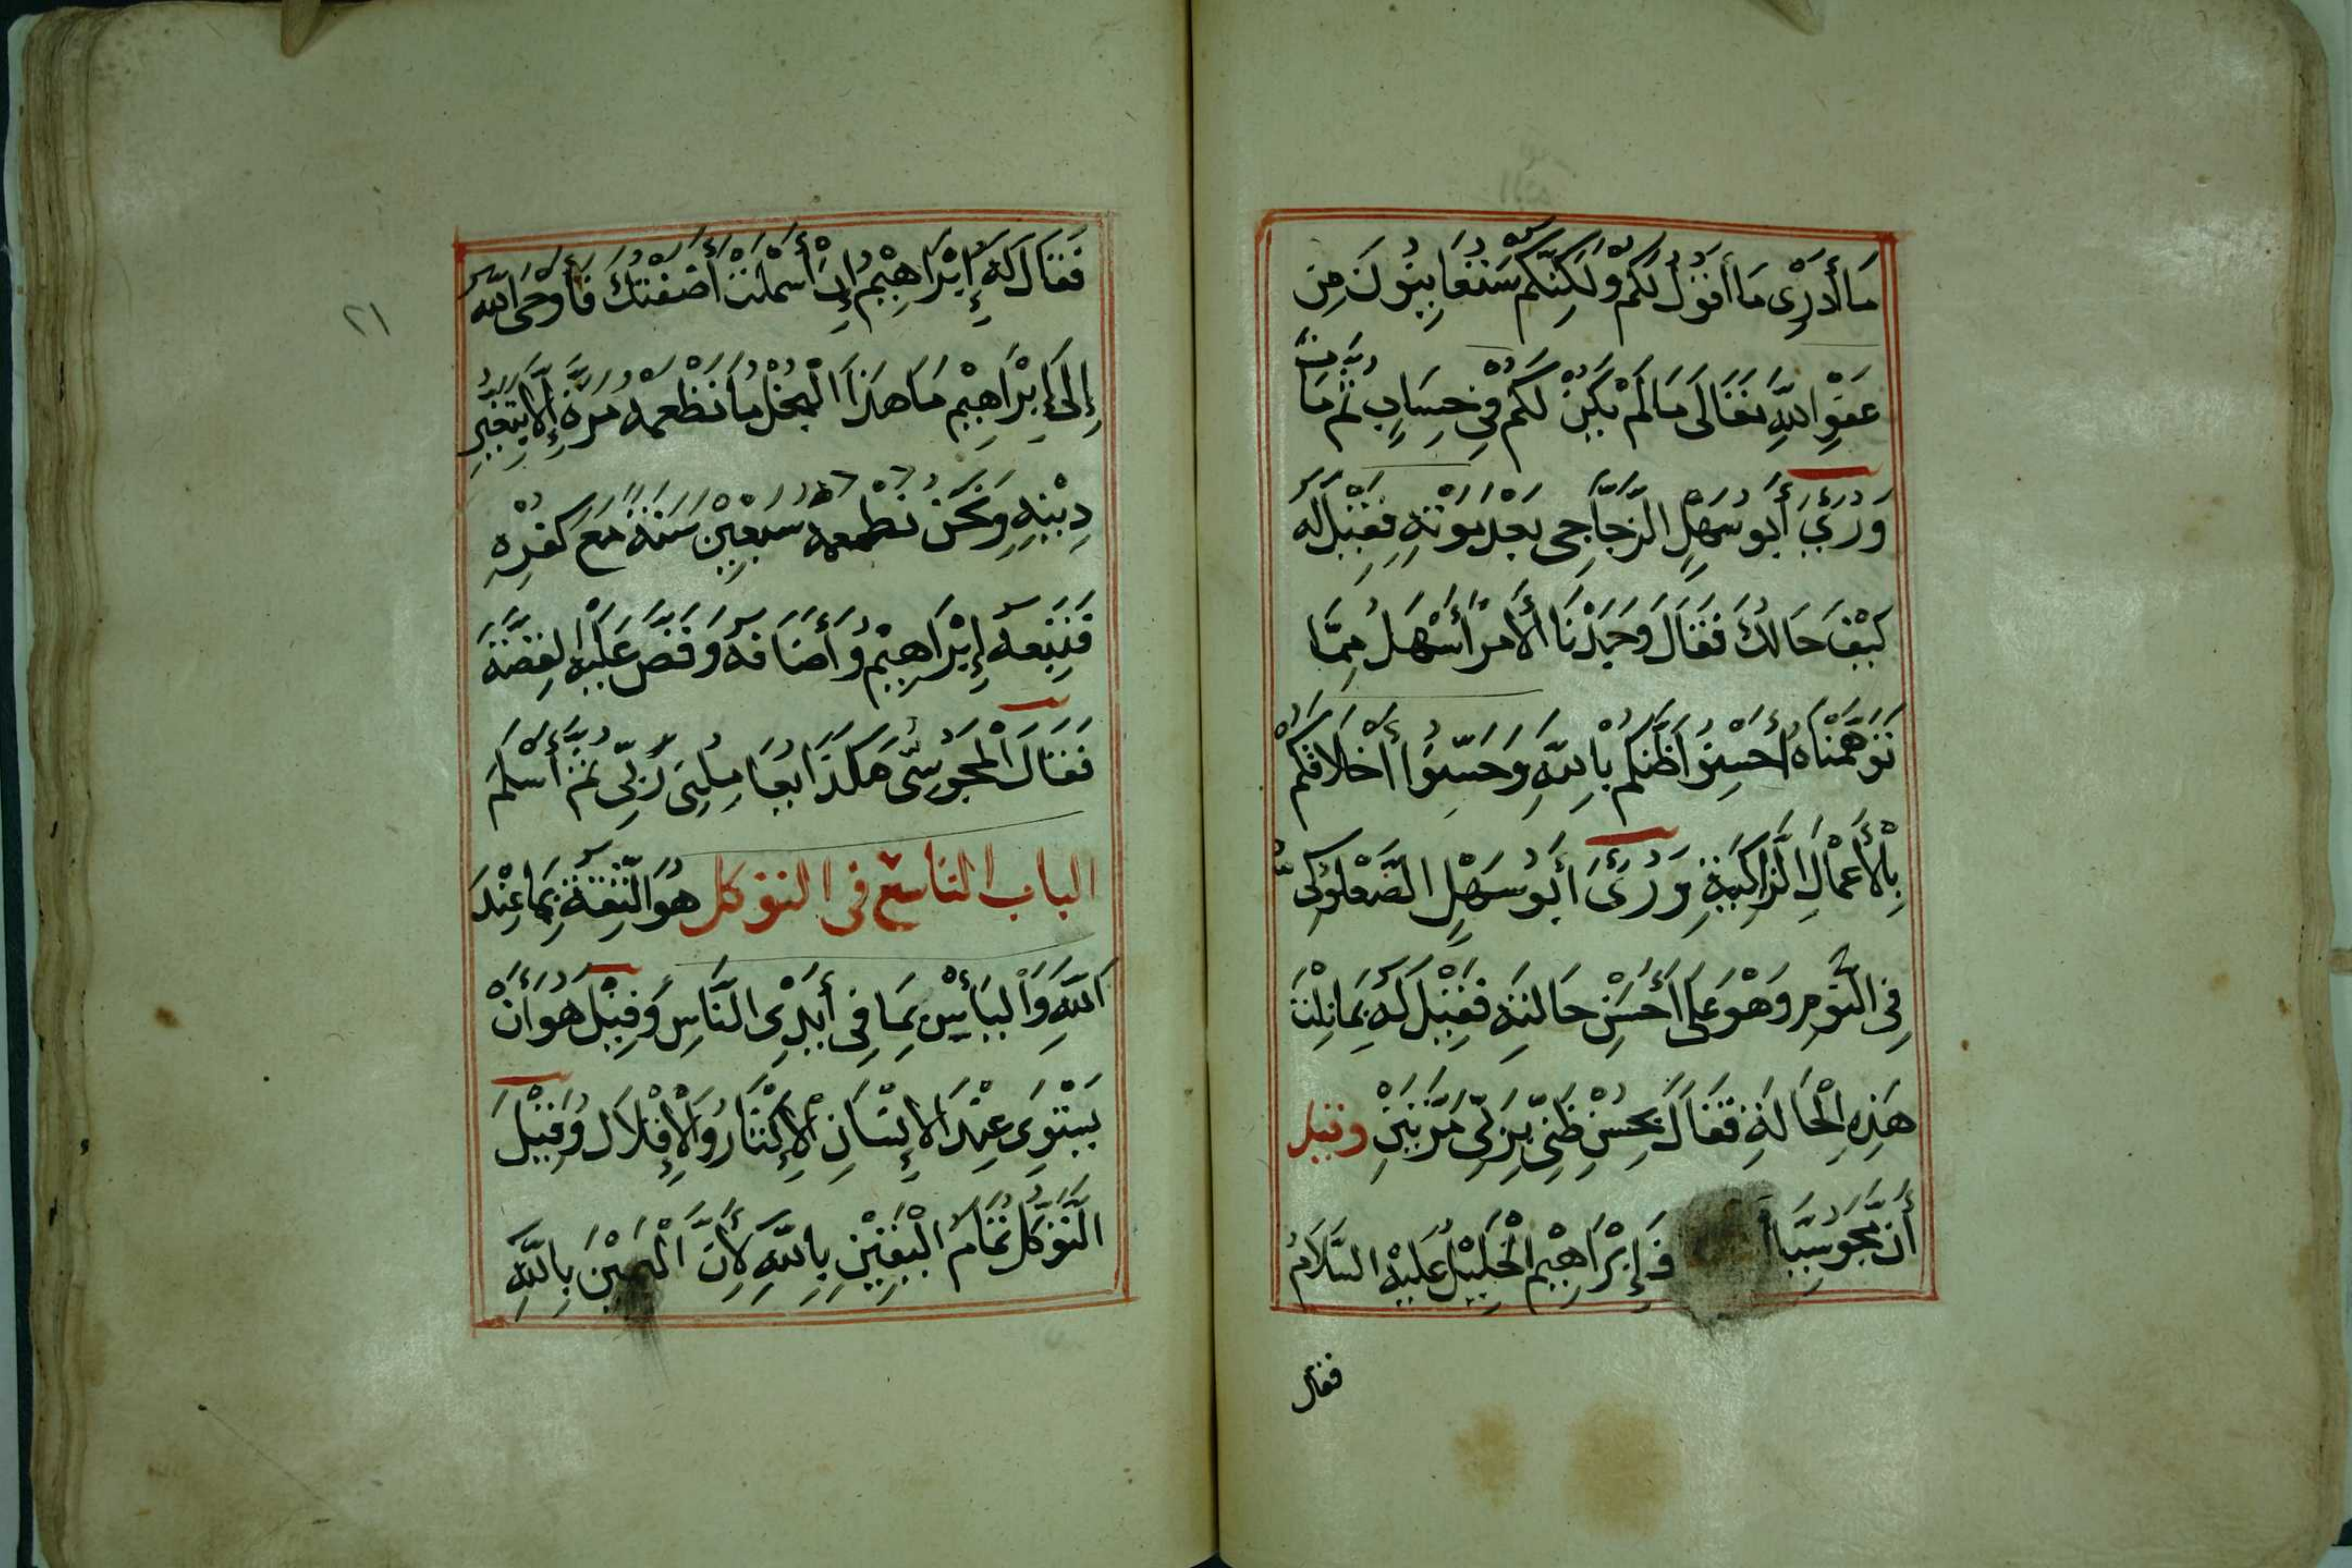 مَا أَدْرِى مَا أَقُولُ لَكُمْ وَلَكِنَّكُمْ سَتُعَايِنُونَ مِنْ
عَفْوِ اللَّهِ تَعَالَى مَا لَمْ يَكُنْ لَكُمْ فِي حِسَابٍ ثُمَّ مَاتَ
وَرُئِيَ أَبُو سَهْلِ الزَّجَّاجِى بَعْدَ مَوْتِهِ فَقِيلَ لَهُ
كَيْفَ حَالُكَ فَقَالَ وَجَدْنَا الأَمْرَ أَسْهَلُ مِمَّا
تَوَهَّمْنَاهُ أَحْسِنُوا ظَنَّكُمْ بِاللَّهِ وَحَسِّنُوا أَخْلَاقَكُمْ
بِالْأَعْمَالِ الزَّاكِيَةِ وَرُئِىَ أَبُو سَهْلِ الصَّعْلُوكِىّ
فِي النَّوْمِ وَهْوَ عَلَى أَحْسَنِ حَالَتِهِ فَقِيلَ لَهُ بِمَا نِلْتَ
هَذِهِ الْحَالَةِ فَقَالَ بِحُسْنِ ظَنِّى بِرَبِّى مَرَّتَيْنِ وقيل
أَنَّ مَجُوسِيًّا إِبْرَاهِيْمَ الْخَلِيْلُ عَلَيْهِ السَّلَامُ
فقال
٢١
فَقَالَ لَهُ إِبْرَاهِيْمُ إِنْ أَسْلَمْتَ أَضَفْتُكَ فَأَوْحَى اللَّهُ
إِلَى إِبْرَاهِيْمِ مَا هَذَا الْبُخْلُ مَا تُطْعِمُهُ مَرَّةً إِلَّا بِتَغْيِيرِ
دِيْنِهِ وَنَحْنُ نُطْعِمُهُ سَبْعِيْنَ سَنَةً مَعَ كُفْرِهِ
فَتَبِعَهُ إِبْرَاهِيْمُ وَأَضَافَهُ وَقَصَّ عَلَيْهِ القِصَّةَ
فَقَالَ الْمَجُوسِىُّ هَكَذَا يُعَامِلُنِى رَبِّى ثُمَّ أَسْلَمَ
الباب التاسع فى التوكل هُوَ الثِّقَةُ بِمَا عِنْدَ
اللَّهِ وَالْيَأْسُ بِمَا فِى أَيْدِى النَّاسِ وَقِيْلَ هُوَ أَنْ
يَسْتَوِى عِنْدَ الإِنْسَانِ الإِكْثَارُ وَالْإِقْلَالُ وَقِيْلَ
التَّوَكُّلُ تَمَامُ الْيَقِيْنِ بِاللَّهِ لِأَنَّ الْيَقِيْنَ بِاللَّهِ